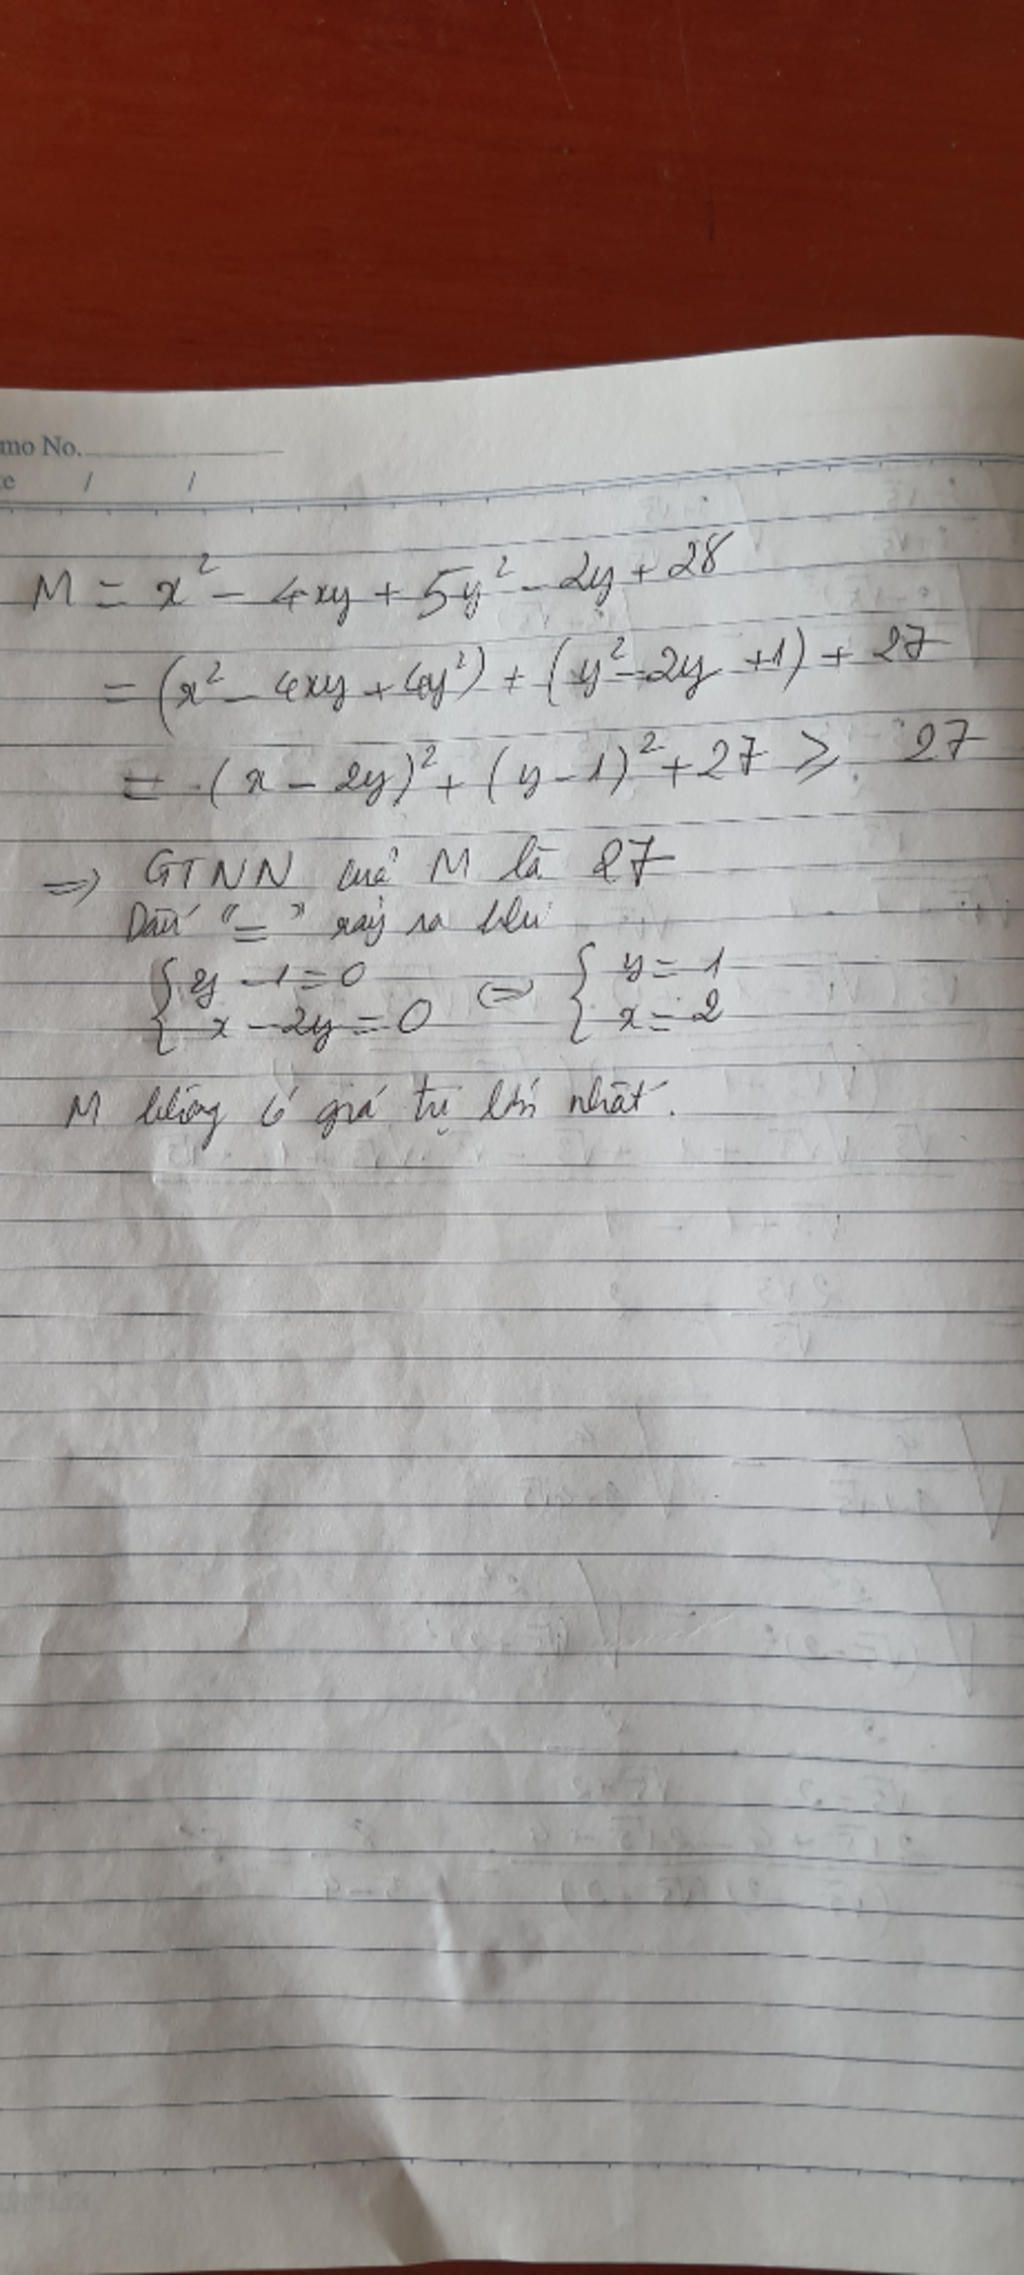 mo No.
te / /
M = x² - 4xy + 5y² - 2y + 28
= (x² - 4xy + 4y²) + (y² - 2y + 1) + 27
= (x - 2y)² + (y - 1)² + 27 ≥ 27
=> GTNN của M là 27
Dấu "=" xảy ra khi
{ y - 1 = 0 <=> { y = 1
{ x - 2y = 0 { x = 2
M không có giá trị lớn nhất.